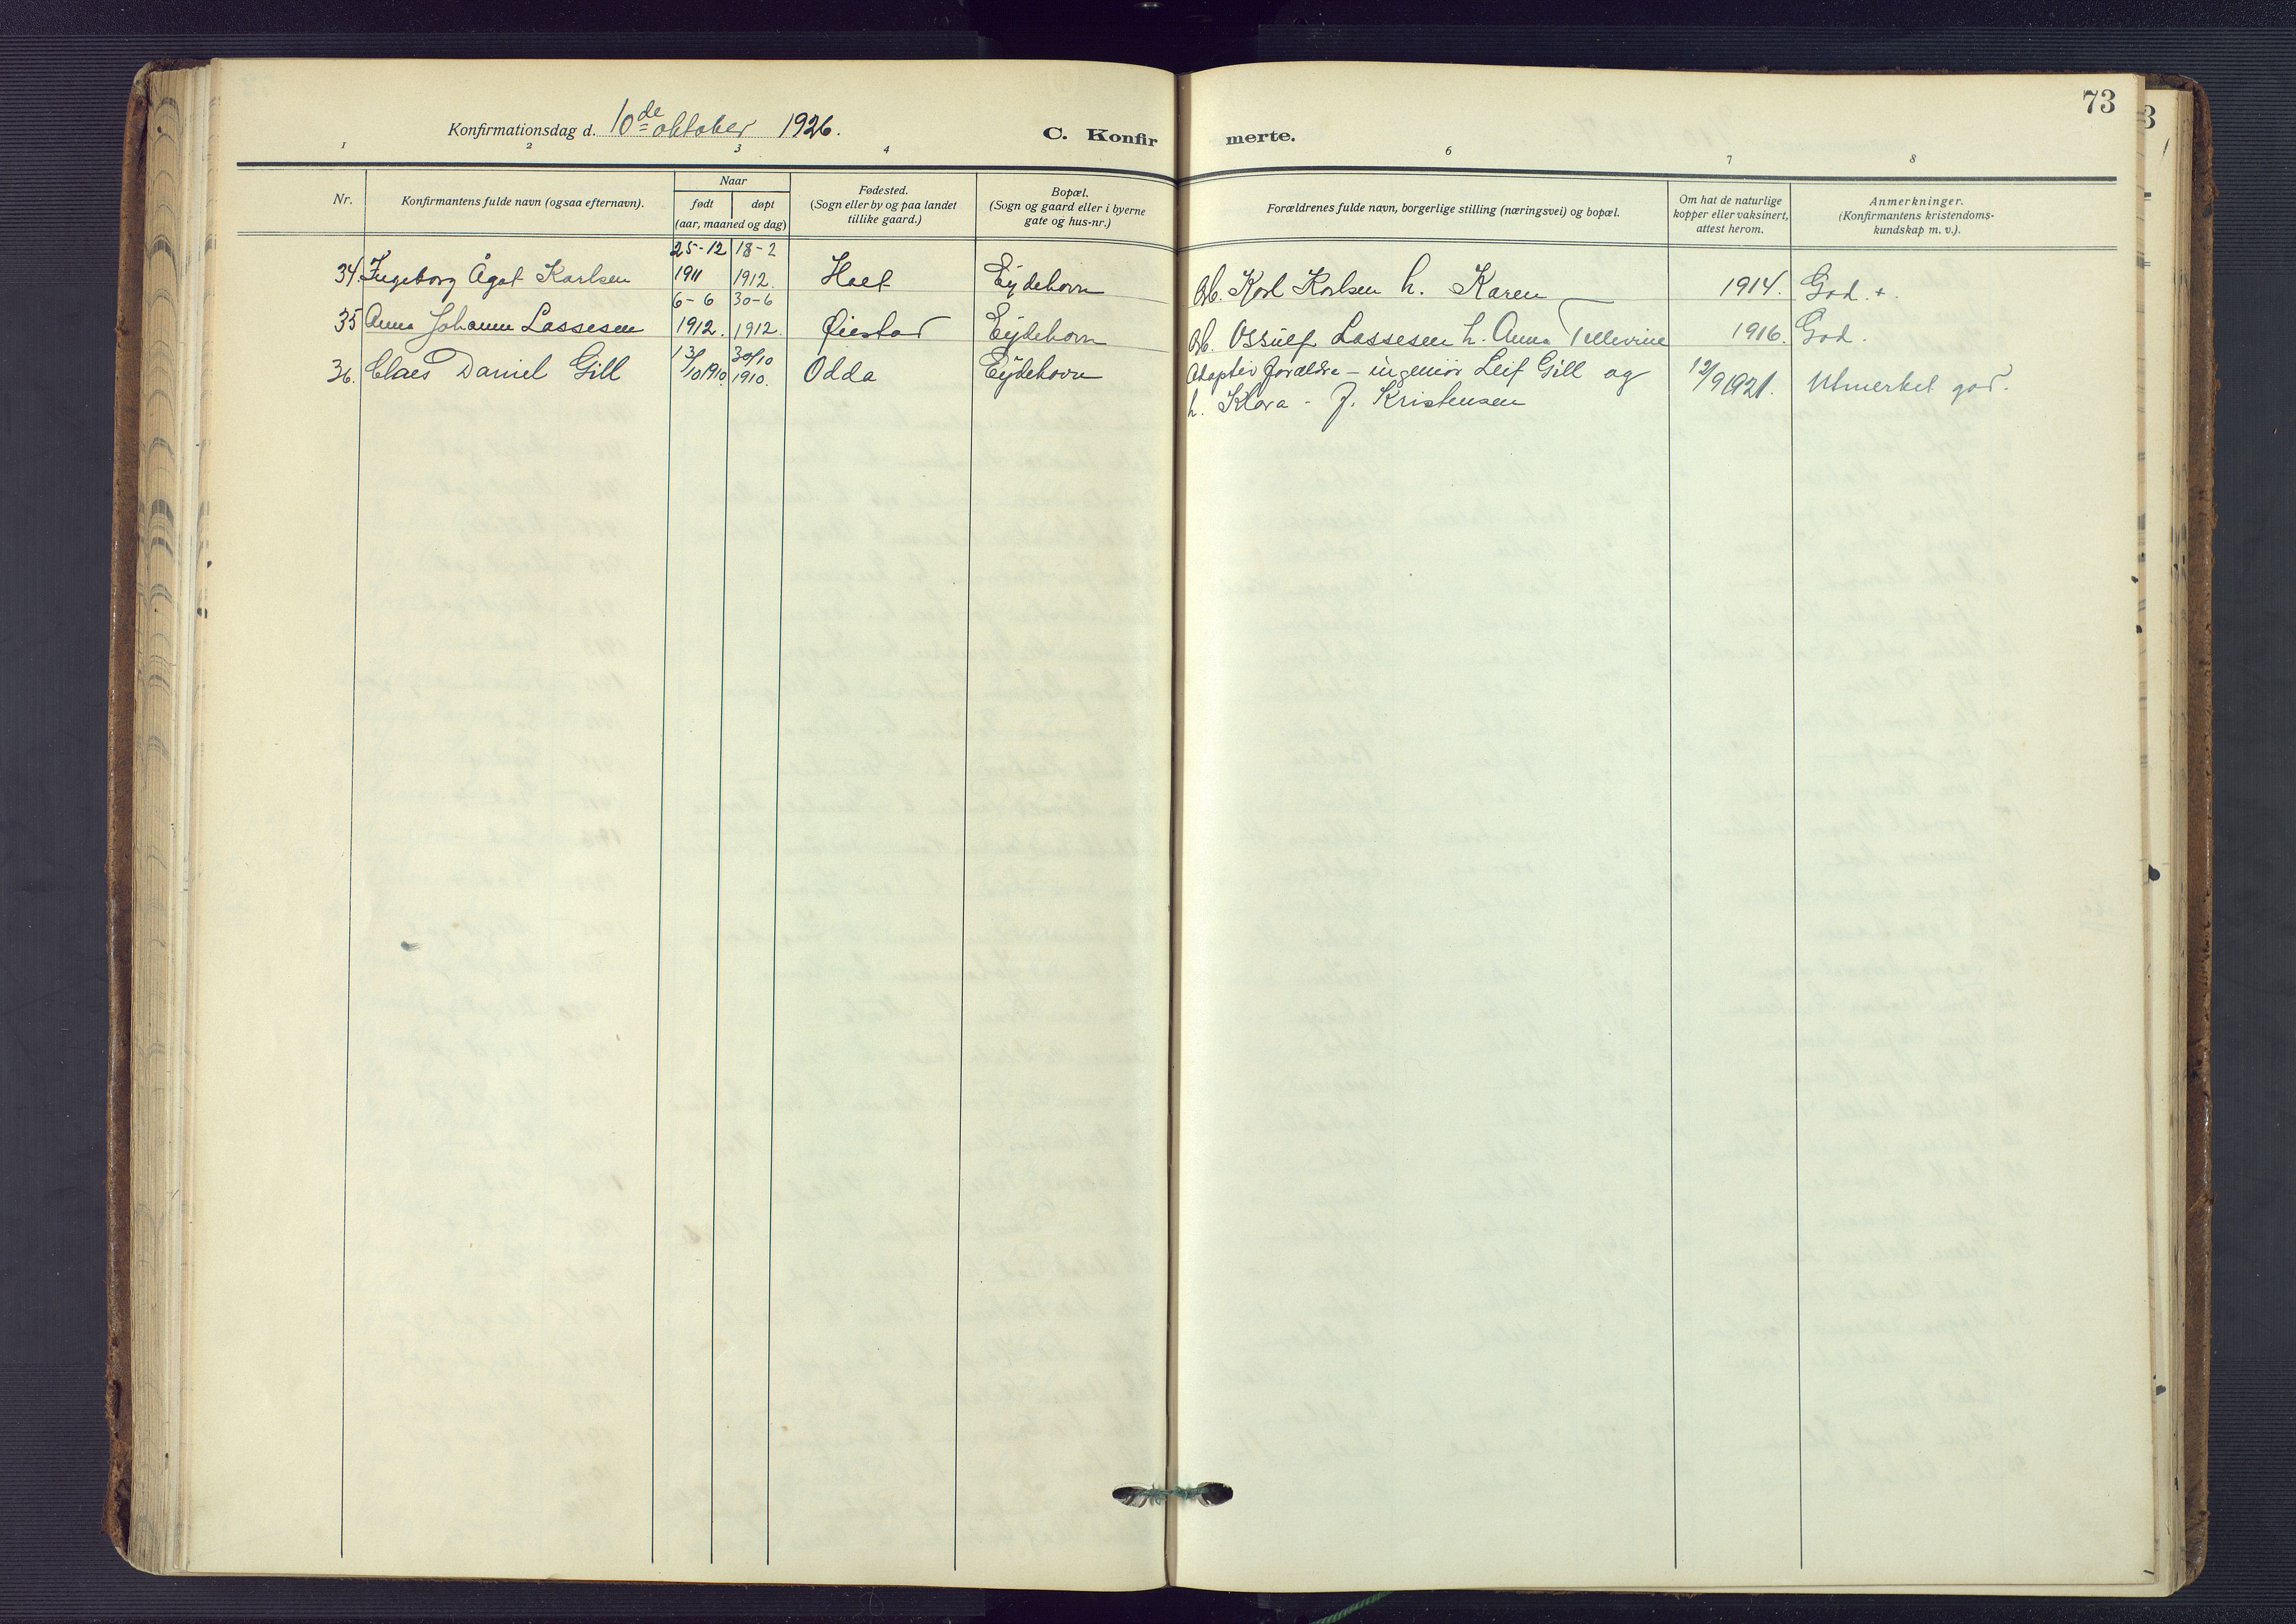 73
Konfirmationsdag d. 10de oktober 1926.
C. Konfirmerte.
1 2 3 4 6 7 8
Nr.
Konfirmantens fulde navn (ogsaa efternavn).
Naar
født
døpt
(aar, maaned og dag)
Fødested.
(Sogn eller by og paa landet
tillike gaard.)
Bopæl.
(Sogn og gaard eller i byerne
gate og hus-nr.)
Forældrenes fulde navn, borgerlige stilling (næringsvei) og bopæl.
Om hat de naturlige
kopper eller vaksinert,
attest herom.
Anmerkninger.
(Konfirmantens kristendoms-
kundskap m. v.).
25-12 18-2
34. Ingeborg Ågot Karlsen 1911 1912. Holt Eydehavn Arb. Karl Karlsen h. Karen 1914. God. +.
6-6 30-6
35 Anna Johanne Lassesen 1912. 1912. Øiestad Eydehavn Arb. Ossulf Lassesen h. Anna Tellevine 1916. God.
36. Claes Daniel Gill 13/10 1910. 30/10 1910. Odda Eydehavn Adoptiv forældre - ingeniør Leif Gill og 12/9 1921. Utmerket god.
h. Klara - f. Kristensen